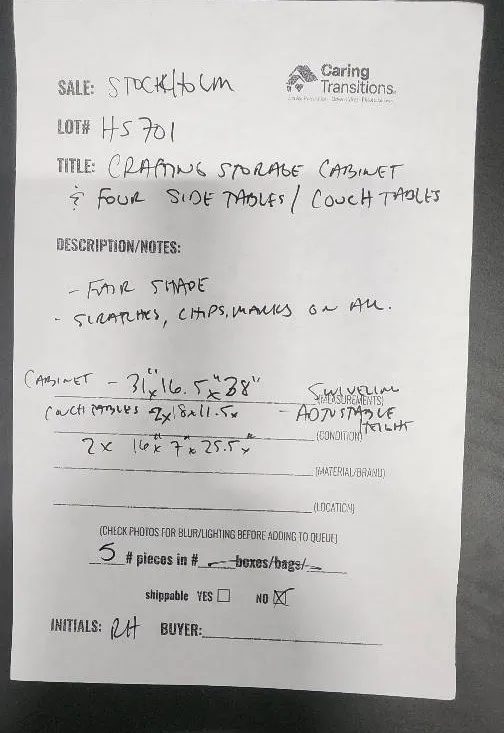 Caring
Transitions
SALE: STOCKHOLM
LOT# HS 701
TITLE: CRAFTING STORAGE CABINET
& FOUR SIDE TABLES / COUCH TABLES
DESCRIPTION/NOTES:
- FAIR SHAPE
- SCRATCHES, CHIPS, MARKS ON ALL.
CABINET - 31"x16.5x"38"
SWIVELING
(MEASUREMENTS)
COUCH TABLES 2x18x11.5x
- ADJUSTABLE HEIGHT
(CONDITION)
2x 16"x 7"x 25.5x"
(MATERIAL/BRAND)
(LOCATION)
(CHECK PHOTOS FOR BLUR/LIGHTING BEFORE ADDING TO QUEUE)
5 # pieces in # — boxes/bags/—
shippable YES ☐ NO ☒
INITIALS: RH BUYER: